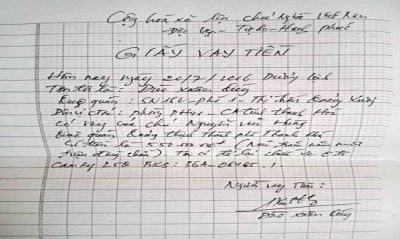 Cộng hòa xã hội chủ nghĩa Việt Nam
Độc lập - Tự do - Hạnh phúc
GIẤY VAY TIỀN
Hôm nay ngày 20/7/2016 Dương lịch
Tên tôi là: Đào Xuân
Quê quán: SN 162 - Phố 1 - Thị trấn Quảng Xương
Đơn vị CTác: phòng - CA tỉnh Thanh Hoá
Có vay của chú Nguyễn
Quê quán Quảng Thành phố Thanh Hoá
Số tiền là 552.000.000đ (Năm trăm năm mươi
triệu đồng chẵn). Tôi có để lại chiếc xe ô tô
Camry 2.5Q BKS: 36A-
Người vay tiền:
Đào Xuân